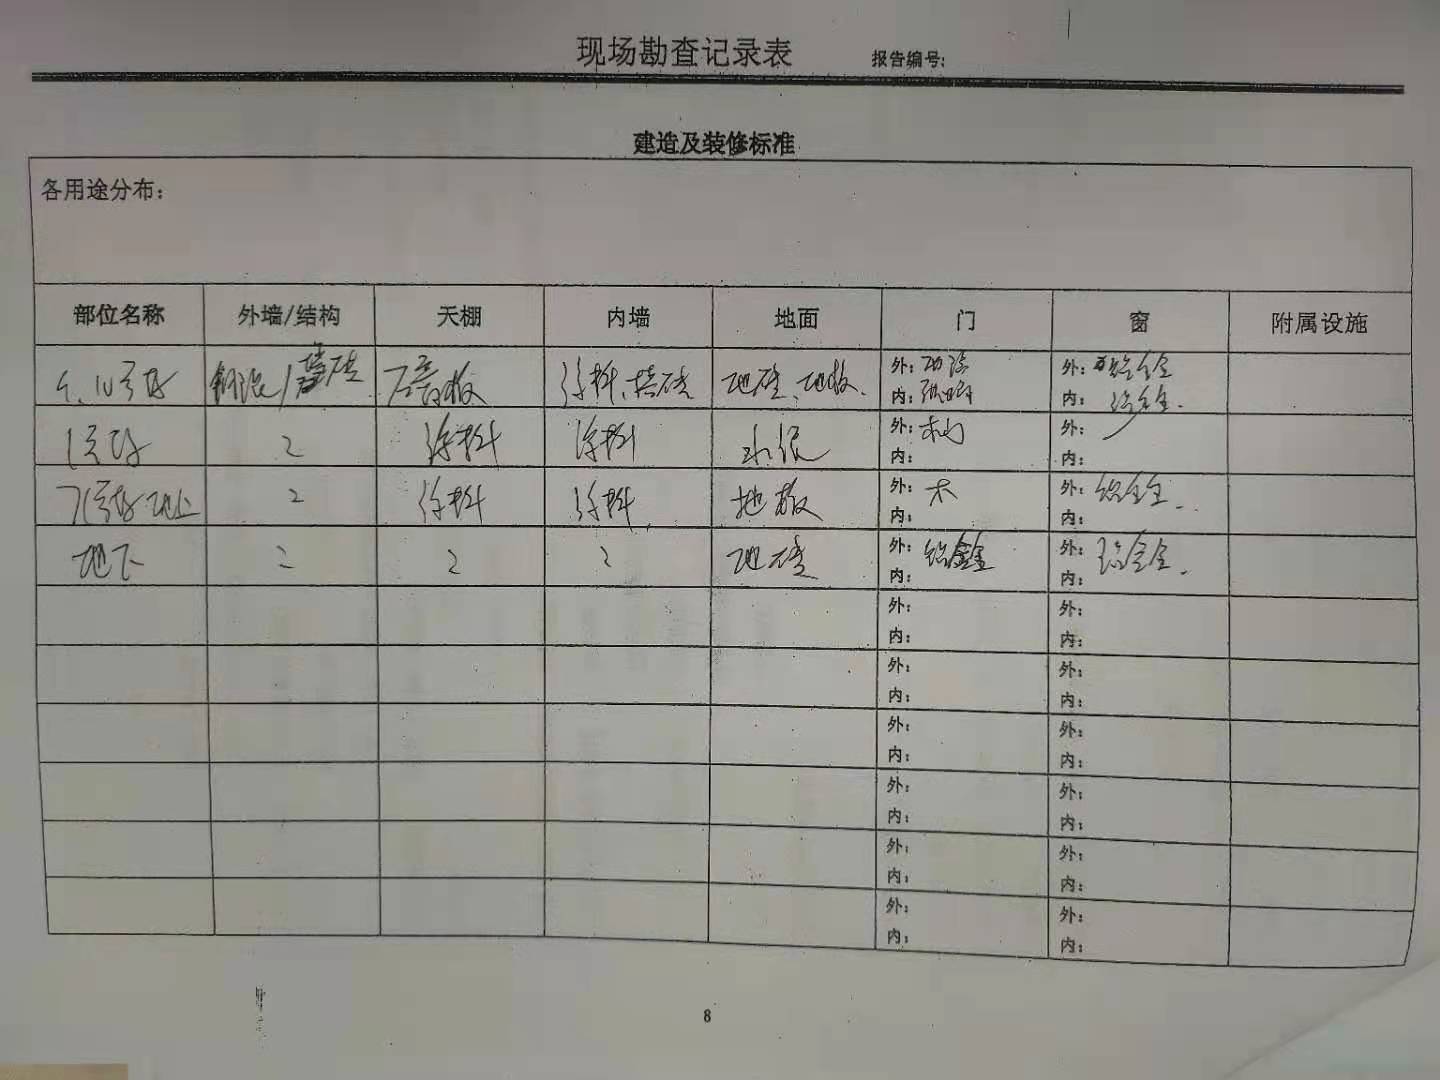 现场勘查记录表 报告编号:
建造及装修标准
各用途分布:
部位名称 外墙/结构 天棚 内墙 地面 门 窗 附属设施
9、10号楼 钢混/墙砖 石膏板 涂料、墙砖 地砖、地板. 外: 内: 外:铝合金 内:铝合金.
1号楼 2 涂料 涂料 水泥 外:木门 内: 外: 内:
7号楼地上 2 涂料 涂料 地板 外:木 内: 外:铝合金. 内:
地下 2 2 2 地砖 外:铝合金 内: 外:铝合金. 内:
外: 内: 外: 内:
外: 内: 外: 内:
外: 内: 外: 内:
外: 内: 外: 内:
外: 内: 外: 内:
外: 内: 外: 内:
8